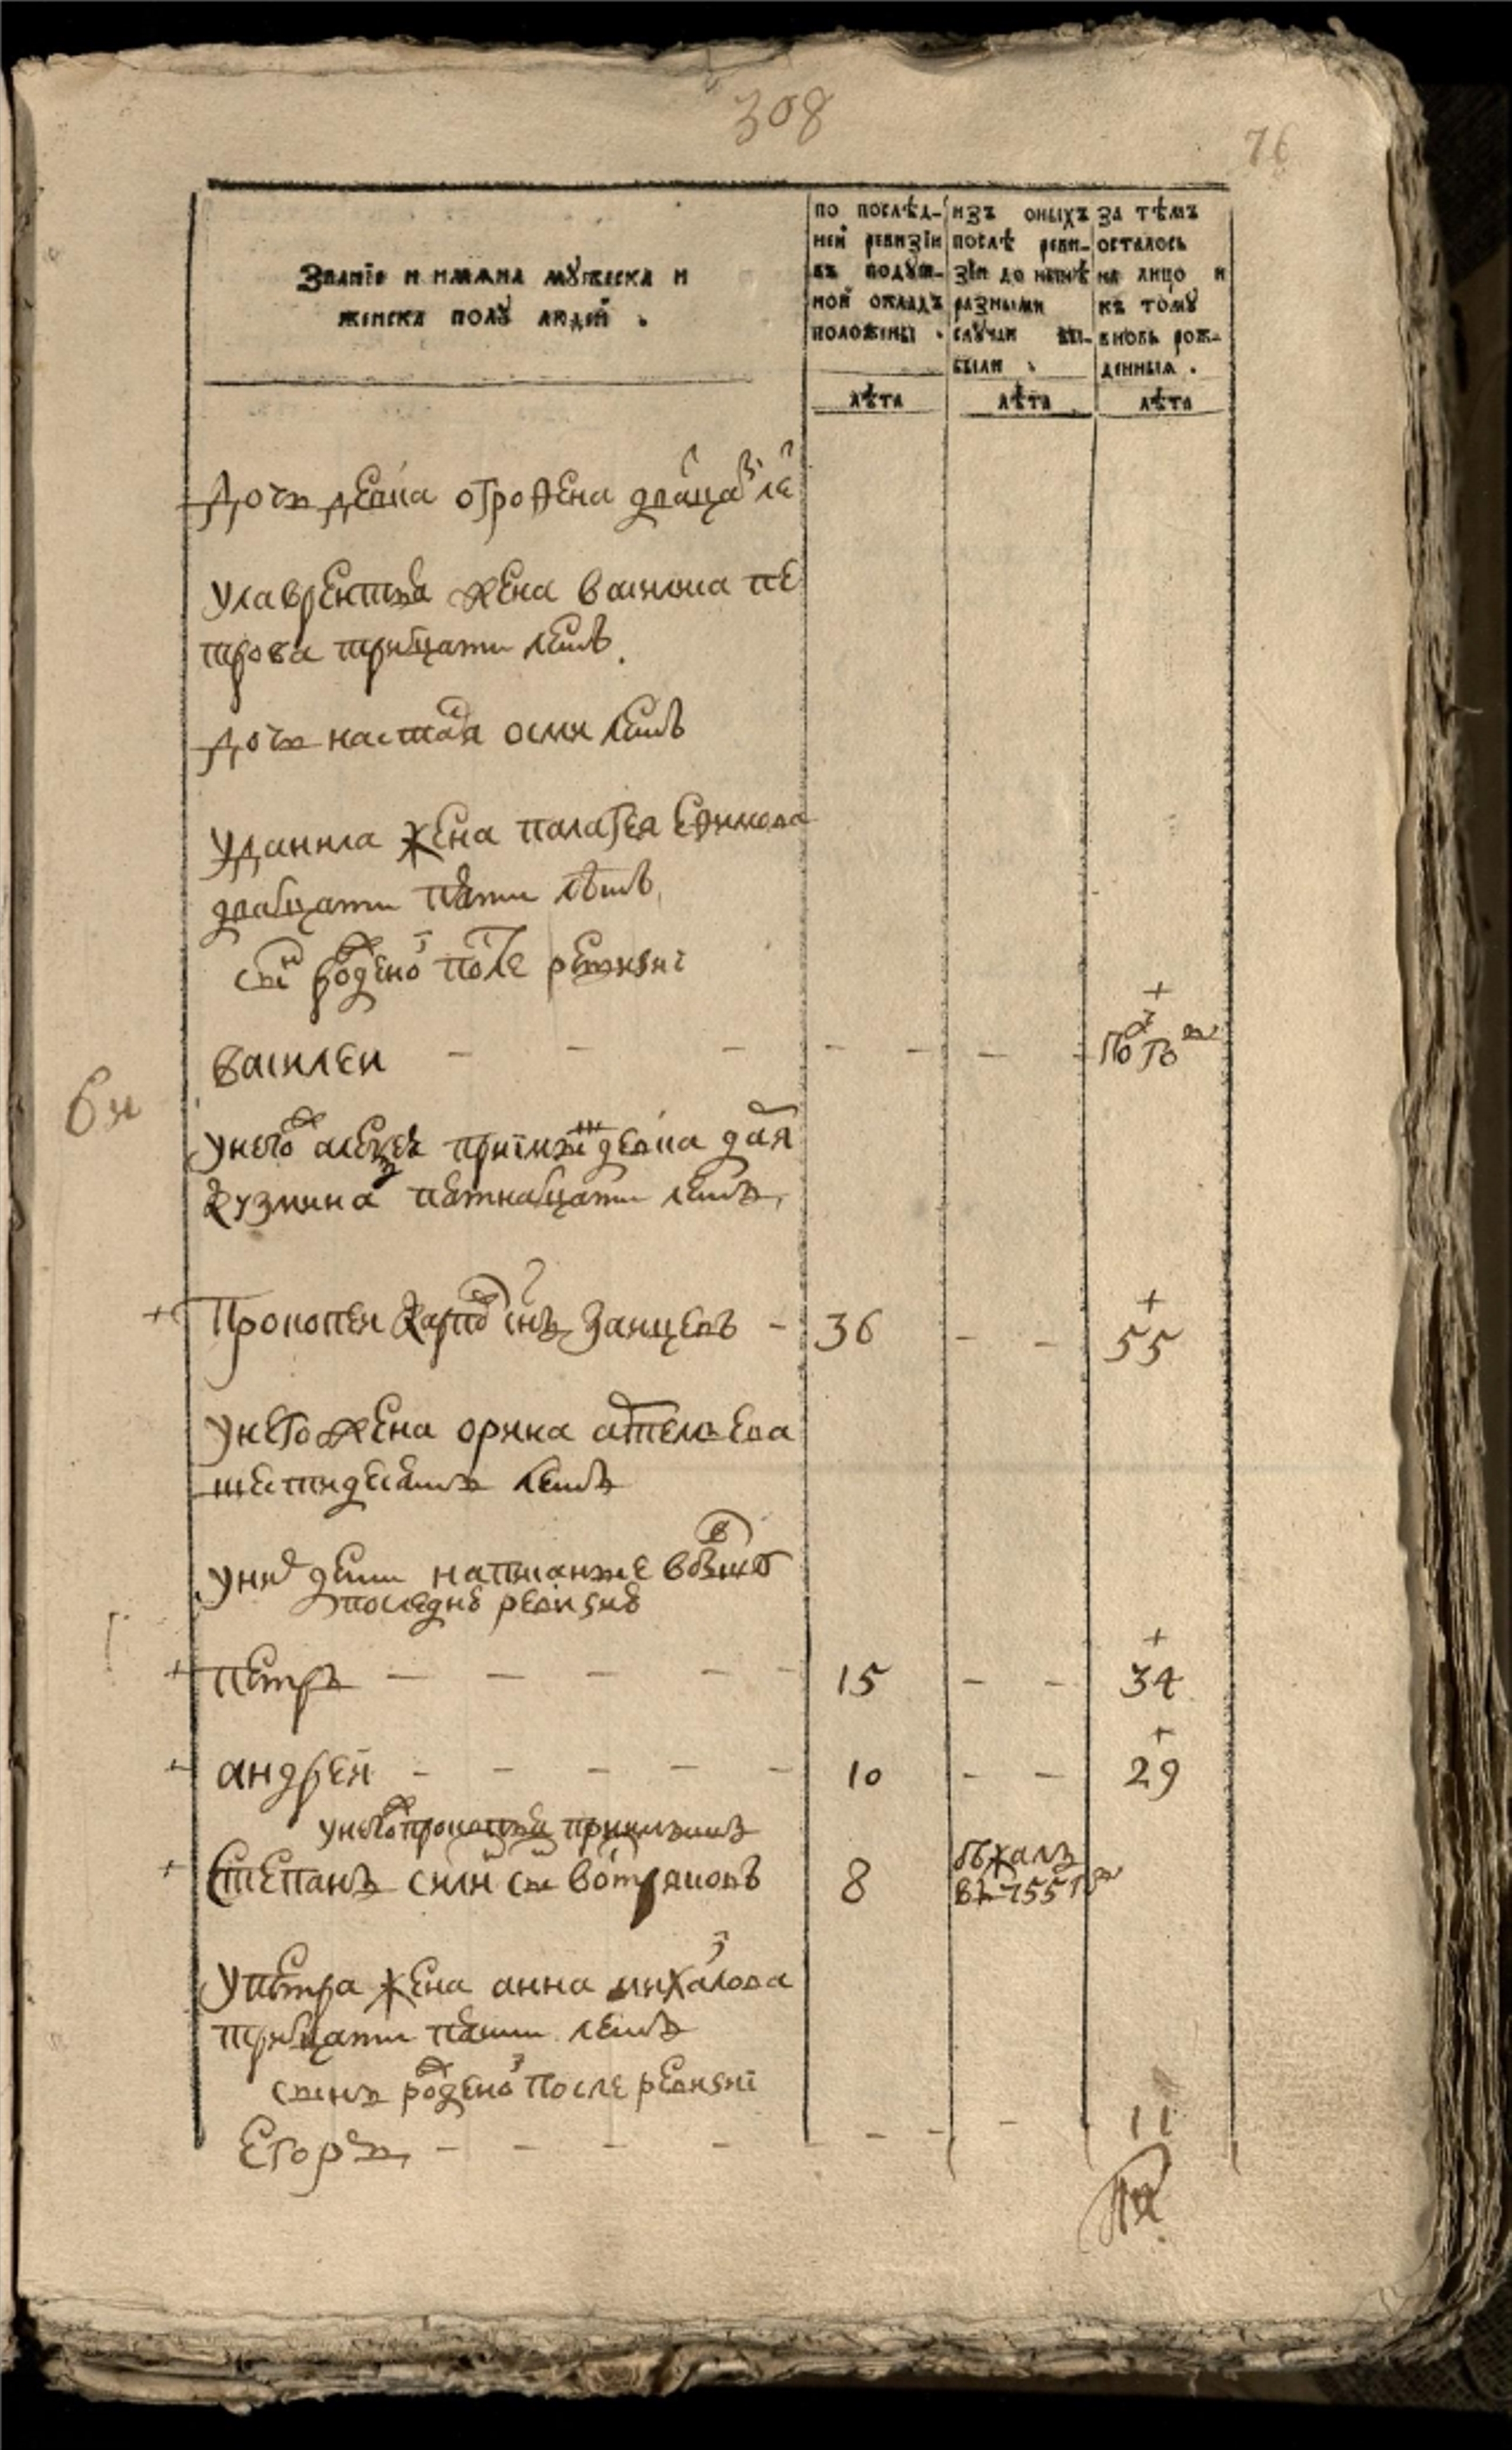 308
76
Званїе и имяна мужеска и
женска полу людей .
по послѣд-
ней ревизїи
въ подуш-
ной окладъ
положены .
изъ оныхъ
послѣ реви-
зїи до нынѣ
разными
случаи вы-
были .
за тѣмъ
осталось
на лицо и
къ тому
вновь рож-
денныя .
лѣта
лѣта
лѣта
дочь девка
улаврентья жена
трова тритцати летъ
дочь настася осми летъ
уданила жена палагея ефимова
дватцати пяти лѣтъ
сынъ рожденой после ревизиї
василеи - - - - - - пол года
6 н
унего девка дарья
кузмина пятнатцати летъ
+ Прокопеи карповъ снъ заицевъ - 36 - - + 55
унего жена орина
шестидесятъ летъ
унихъ дети написанные
последней ревизие
+ петръ - - - - - 15 - - + 34
+ андреи - - - - - 10 - - + 29
унегожъ прокопья приимышъ
+ степанъ снъ 8 бѣжалъ
въ 755 г
упетра жена анна михаилова
тритцати пяти летъ
сынъ рожденой после ревизиї
егоръ - - - - - - - 11